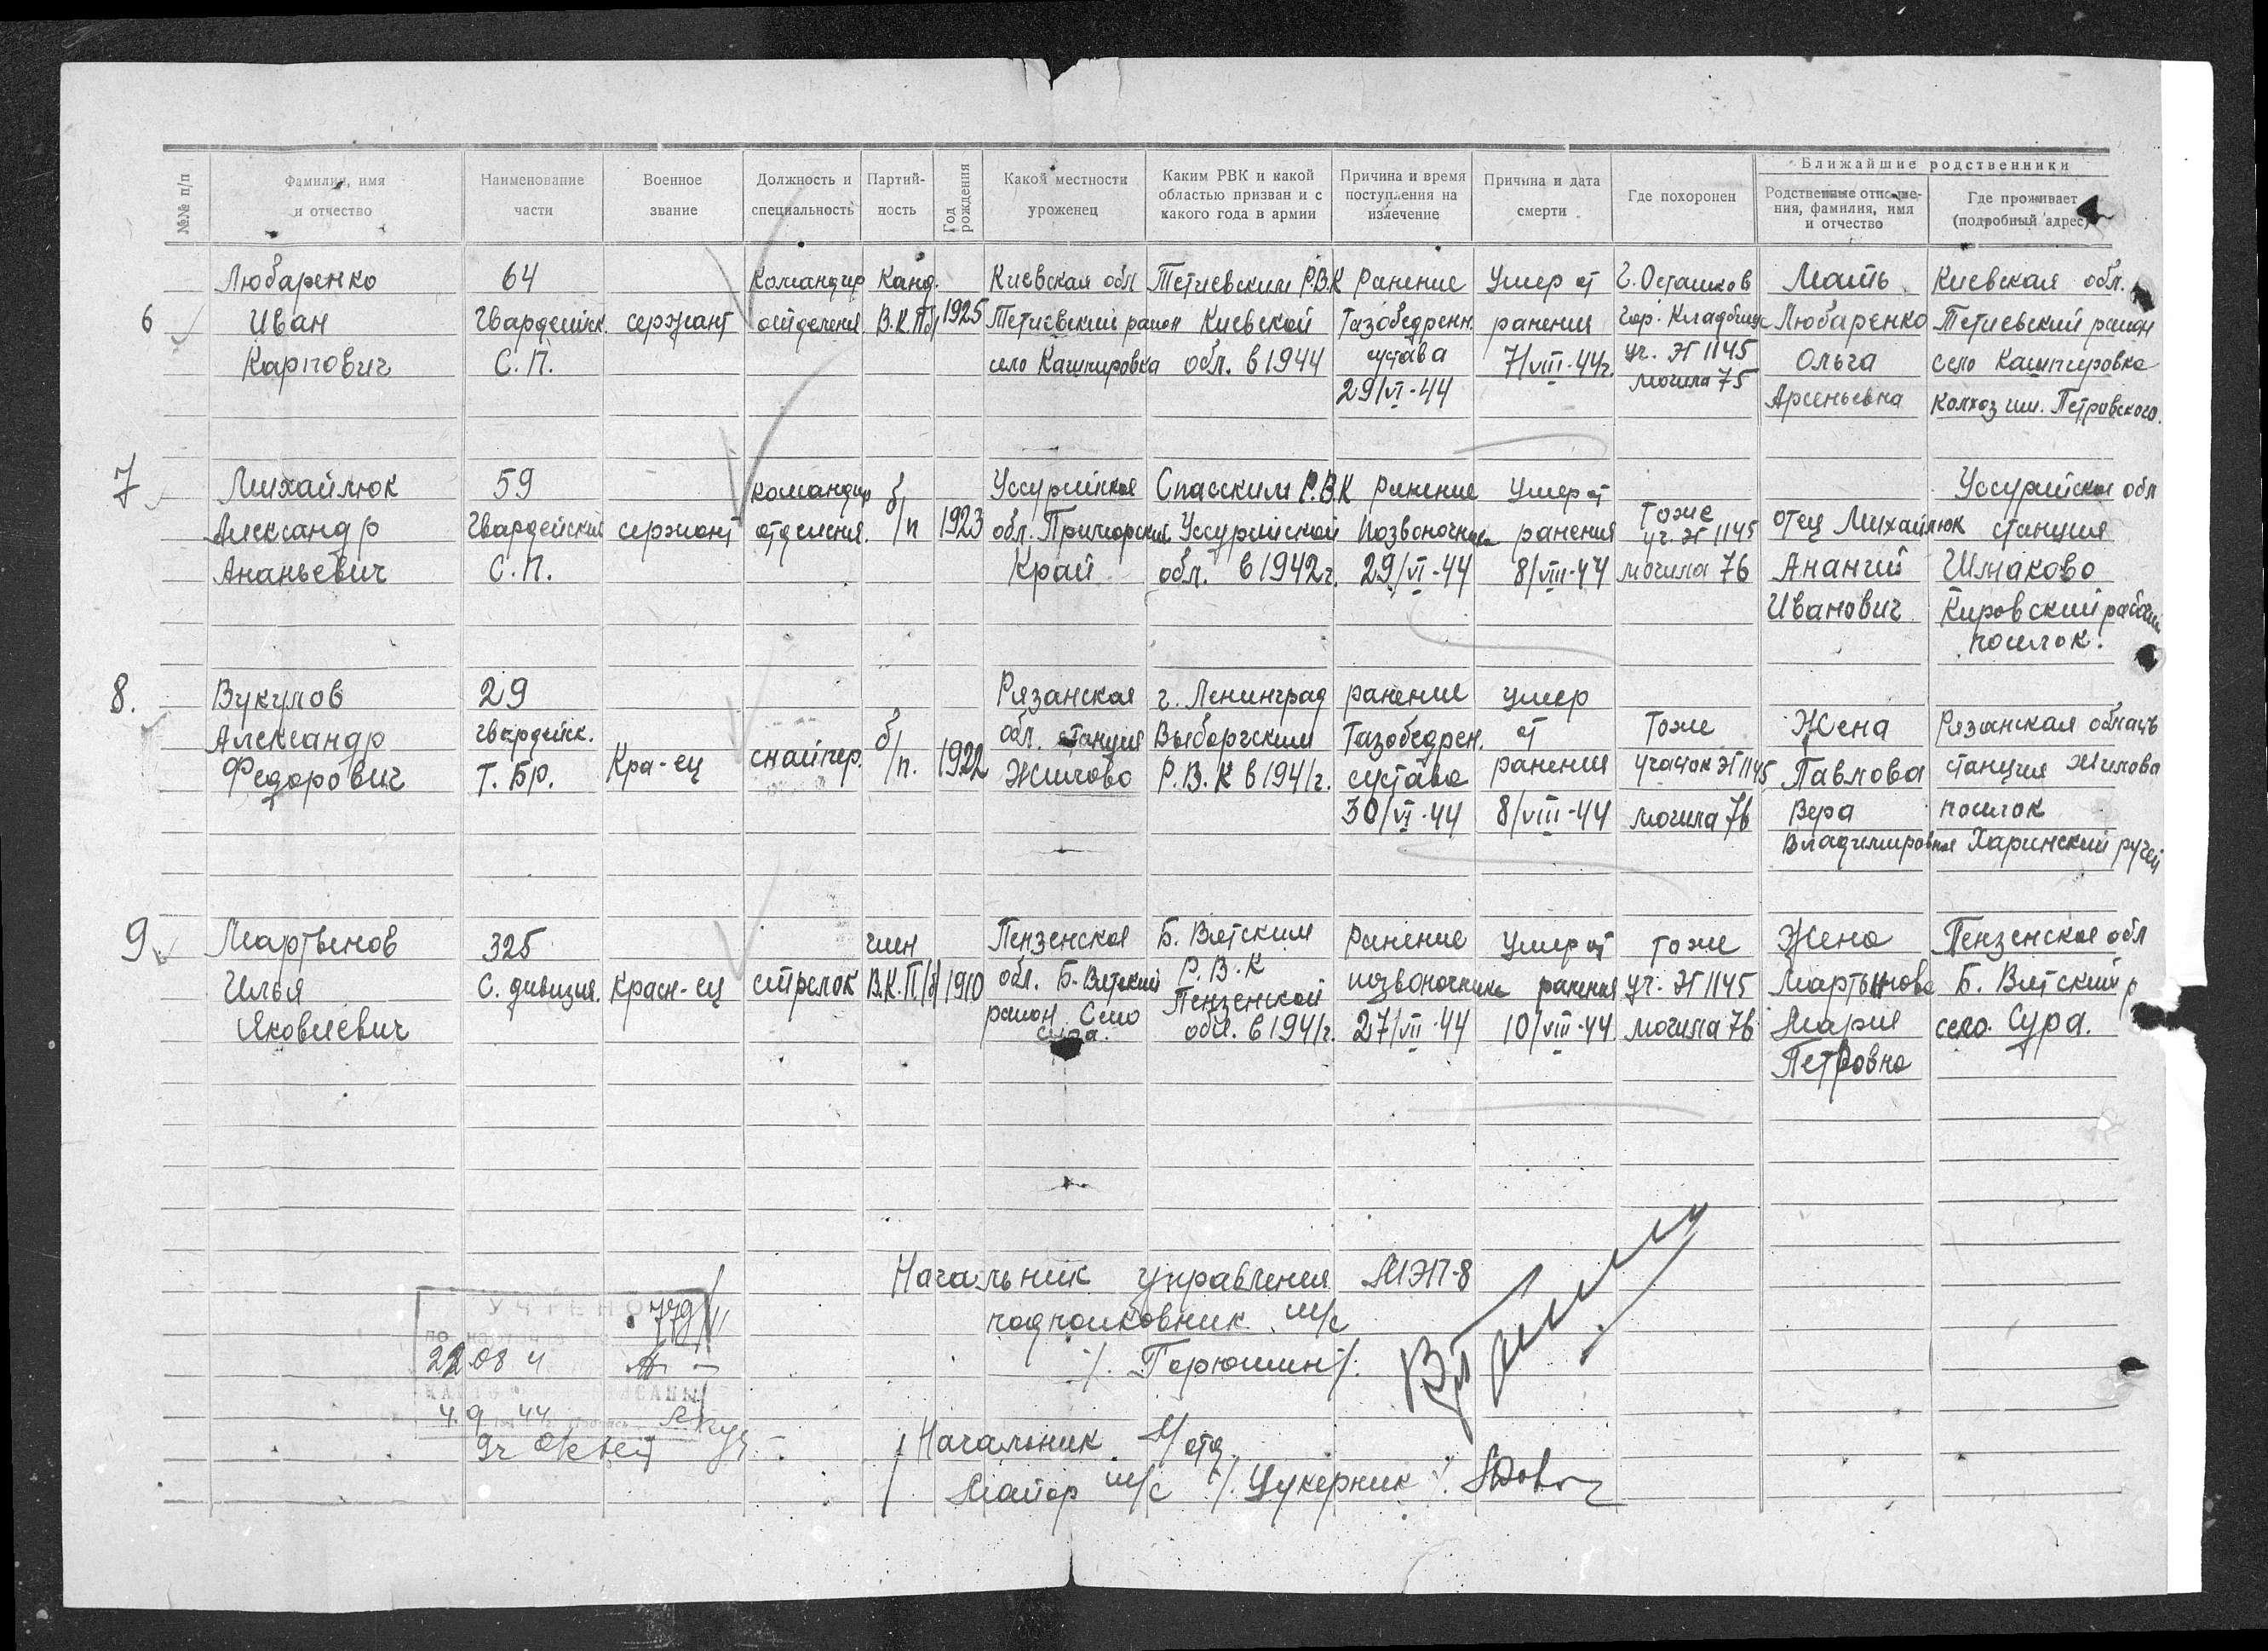 №№ п/п
Фамилия, имя
и отчество
Наименование
части
Военное
звание
Должность и
специальность
Партий-
ность
Год
рождения
Какой местности
уроженец
Каким РВК и какой
областью призван и с
какого года в армии
Причина и время
поступления на
излечение
Причина и дата
смерти
Где похоронен
Ближайшие родственники
Родственные отноше-
ния, фамилия, имя
и отчество
Где проживает
(подробный адрес)
6
Любаренко
Иван
Карпович
64
Гвардейск.
С.П.
сержант
Командир
отделения
Канд.
В.К.Пб/
1925
Киевская обл
Тетиевский район
село Кашперовка
Тетиевским Р.В.К
Киевской
обл. в 1944
Ранение
Тазобедренн.
сустава
29/VI-44
Умер от
ранения
7/VIII-44г.
Г. Осташков
Гор. Кладбище
уч. № 1145
могила 75
Мать
Любаренко
Ольга
Арсеньевна
Киевская обл.
Тетиевский район
село Кашперовка
колхоз им. Петровского.
7
Михайлюк
Александр
Ананьевич
59
Гвардейский
С.П.
сержант
командир
отделения.
б/п
1923
Уссурийская
обл. Приморский
Край
Спасским Р.В.К
Уссурийской
обл. в 1942г.
Ранение
Позвоночника
29/VI-44
Умер от
ранения
8/VIII-44
Тоже
уч. № 1145
могила 76
отец Михайлюк
Ананий
Иванович
Уссурийская обл
станция
Шмаково
Кировский рабочий
поселок.
8.
Вукулов
Александр
Федорович
29
гвардейск.
Т. Бр.
Кра-ец
снайпер.
б/п.
1922
Рязанская
обл. станция
Жилово
г. Ленинград
Выборгским
Р.В.К в 1941г.
ранение
Тазобедрен.
сустава
30/VI-44
умер
от
ранения
8/VIII-44
Тоже
участок № 1145
могила 76
Жена
Павлова
Вера
Владимировна
Рязанская область
станция Жилова
поселок
Харинский ручей
9
Мартынов
Илья
Яковлевич
325
С. дивизия.
Красн-ец
стрелок
член
В.К.П/б/
1910
Пензенская
обл. Б.-Вятский
район Село
Сура.
Б. Вятским
Р.В.К
Пензенской
обл. в 1941г.
Ранение
позвоночника
27/VII-44
Умер от
ранения
10/VIII-44.
тоже
уч. № 1145
могила 76
Жена
Мартынова
Мария
Петровна
Пензенская обл
Б. Вятский р
село. Сура.
Начальник управления МЭП-8
подполковник м/с
/. Герюшин/.
Начальник М/отд.
Майор м/с /. Цукерник /.
УЧТЕНО
22 08 4
4.9 44